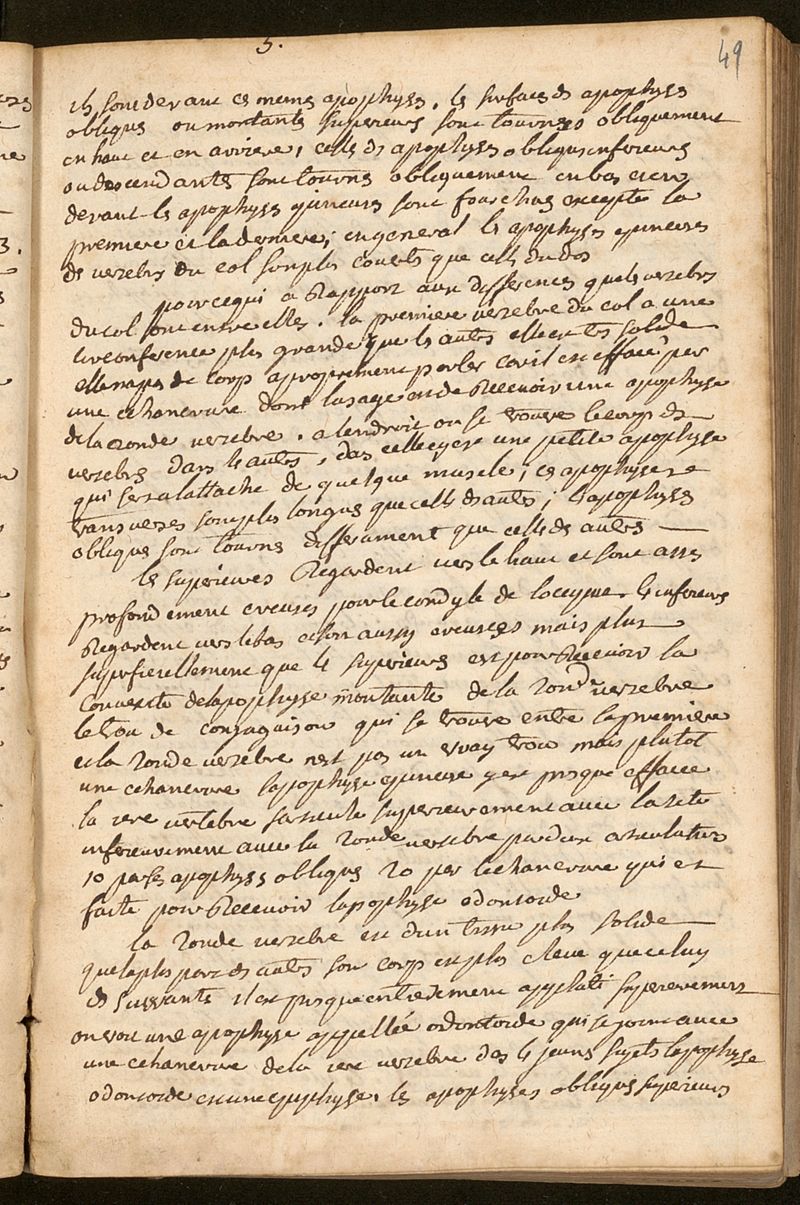 5.
49
ils sont devant ces memes apophyses. les surfaces ds apophyses
obliques ou montants superieurs sont tournees obliquement
en haut et en arriere, celles ds apophyses obliques inferieurs
ou descendantes sont tournes obliquement en bas et en
devant les apophyses epineuses sont fourchus excepté la
premiere et la derniere; en general les apophyses epineuses
ds verzebrs du col son plus courts que cells du dos
pour ce qui a Rapport aux differences que les verzebrs
du col ont entre elles. la premiere verzebre du col a une
circonference plus grande que ls autes elle est tes solide
elle na pas de corps a proprement parler car il est effacé par
une echancrure dont lusage est de Recevoir une apophyse
de la 2onde verzebre. a lendroit ou se trouve le corps ds
verzebrs dans ls autes, dans celle cy est une petite apophyse
qui sert a lattache de quelque muscle; ces apophyses
transverses son plus longues que cells ds autes; ls apophyses
obliques sont tournes differament que cells ds auters
les superieures Regardent vers le haut et sont asses
profondement creuses pour le condyle de loccipue. ls inferieurs
Regardent vers le bas et son aussy creusees mais plus
superficiellement que ls superieurs est pour Recevoir la
convexite de lapophyse montante de la 2onde verzebre
le trou de conjugaison qui se trouve entre la premiere
et la 2onde verzebre nest pas un vray trou mais plutot
une echancrure lapophyse epineuse y est presque effacee
la 1ere vertebre sarticule superieurement avec la tete
inferieurement avec la 2onde verzebre par deux articulations
10 par ses apophyses obliques 20 par lechancrure qui est
faite pour Recevoir lapophyse odontoide
la 2onde verzebre est dun tissu plus solide
que la plus part ds autes son corps est plus eleve que celuy
ds suivants il est presque entierement applati superieurement
on voit une apophyse appellée odontoide qui se joint avec
une echancrure de la 1ere verzebre dans ls jeuns sujets lapophyse
odontoide est une epiphyse. les apophyses obliques superieurs